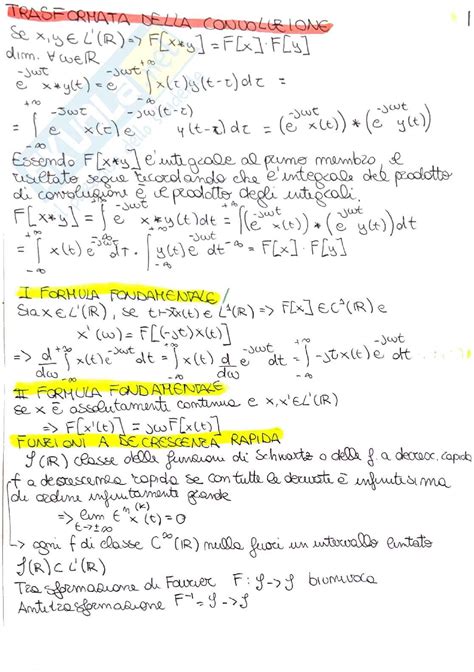 TRASFORMATA DELLA CONVOLUZIONE
1
Se x,y ∈ L¹(ℝ) => F[x*y] = F[x]·F[y]
dim. ∀ω∈ℝ
e^{-jωt} x*y(t) = e^{-jωt} ∫_{-∞}^{+∞} x(τ)y(t-τ)dτ =
= ∫_{-∞}^{+∞} e^{-jωτ} x(τ) e^{-jω(t-τ)} y(t-τ)dτ = (e^{-jωt} x(t)) * (e^{-jωt} y(t))
Essendo F[x*y] l'integrale al primo membro, il
risultato segue ricordando che l'integrale del prodotto
di convoluzione è il prodotto degli integrali.
F[x*y] = ∫_{-∞}^{+∞} e^{-jωt} x*y(t)dt = ∫(e^{-jωt} x(t)) * (e^{-jωt} y(t))dt
= ∫_{-∞}^{+∞} x(t) e^{-jωτ} dτ · ∫_{-∞}^{+∞} y(t) e^{-jωt} dt = F[x]·F[y]
I FORMULA FONDAMENTALE
Sia x∈L¹(ℝ), se t->tx(t) ∈ L¹(ℝ) => F[x] ∈ C¹(ℝ) e
x'(ω) = F[(-jt)x(t)]
=> d/dω ∫_{-∞}^{+∞} x(t)e^{-jωt} dt = ∫_{-∞}^{+∞} x(t) d/dω e^{-jωt} dt = ∫_{-∞}^{+∞} -jtx(t)e^{-jωt} dt
II FORMULA FONDAMENTALE
Se x è assolutamente continua e x,x'∈L¹(ℝ)
=> F[x'(t)] = jωF[x(t)]
FUNZIONI A DECRESCENZA RAPIDA
𝒮(ℝ) classe delle funzioni di Schwartz o delle f. a decresc. rapida
f a decrescenza rapida se con tutte le derivate è infinitesima
di ordine infinitamente grande
=> lim_{t->±∞} tⁿ x^{(k)}(t) = 0
-> ogni f di classe C^∞(ℝ) nulla fuori un intervallo limitato
𝒮(ℝ) ⊂ L¹(ℝ)
Trasformazione di Fourier F: 𝒮->𝒮 biunivoca
Antitrasformazione F⁻¹ = 𝒮->𝒮